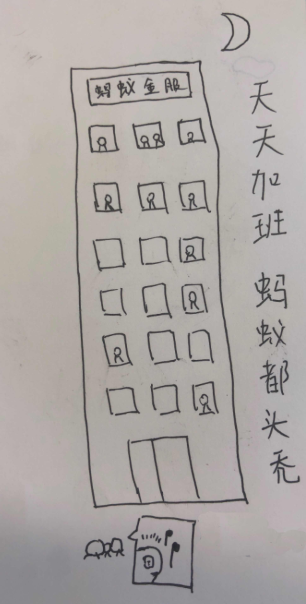 蚂蚁金服
天天加班 蚂蚁都头秃